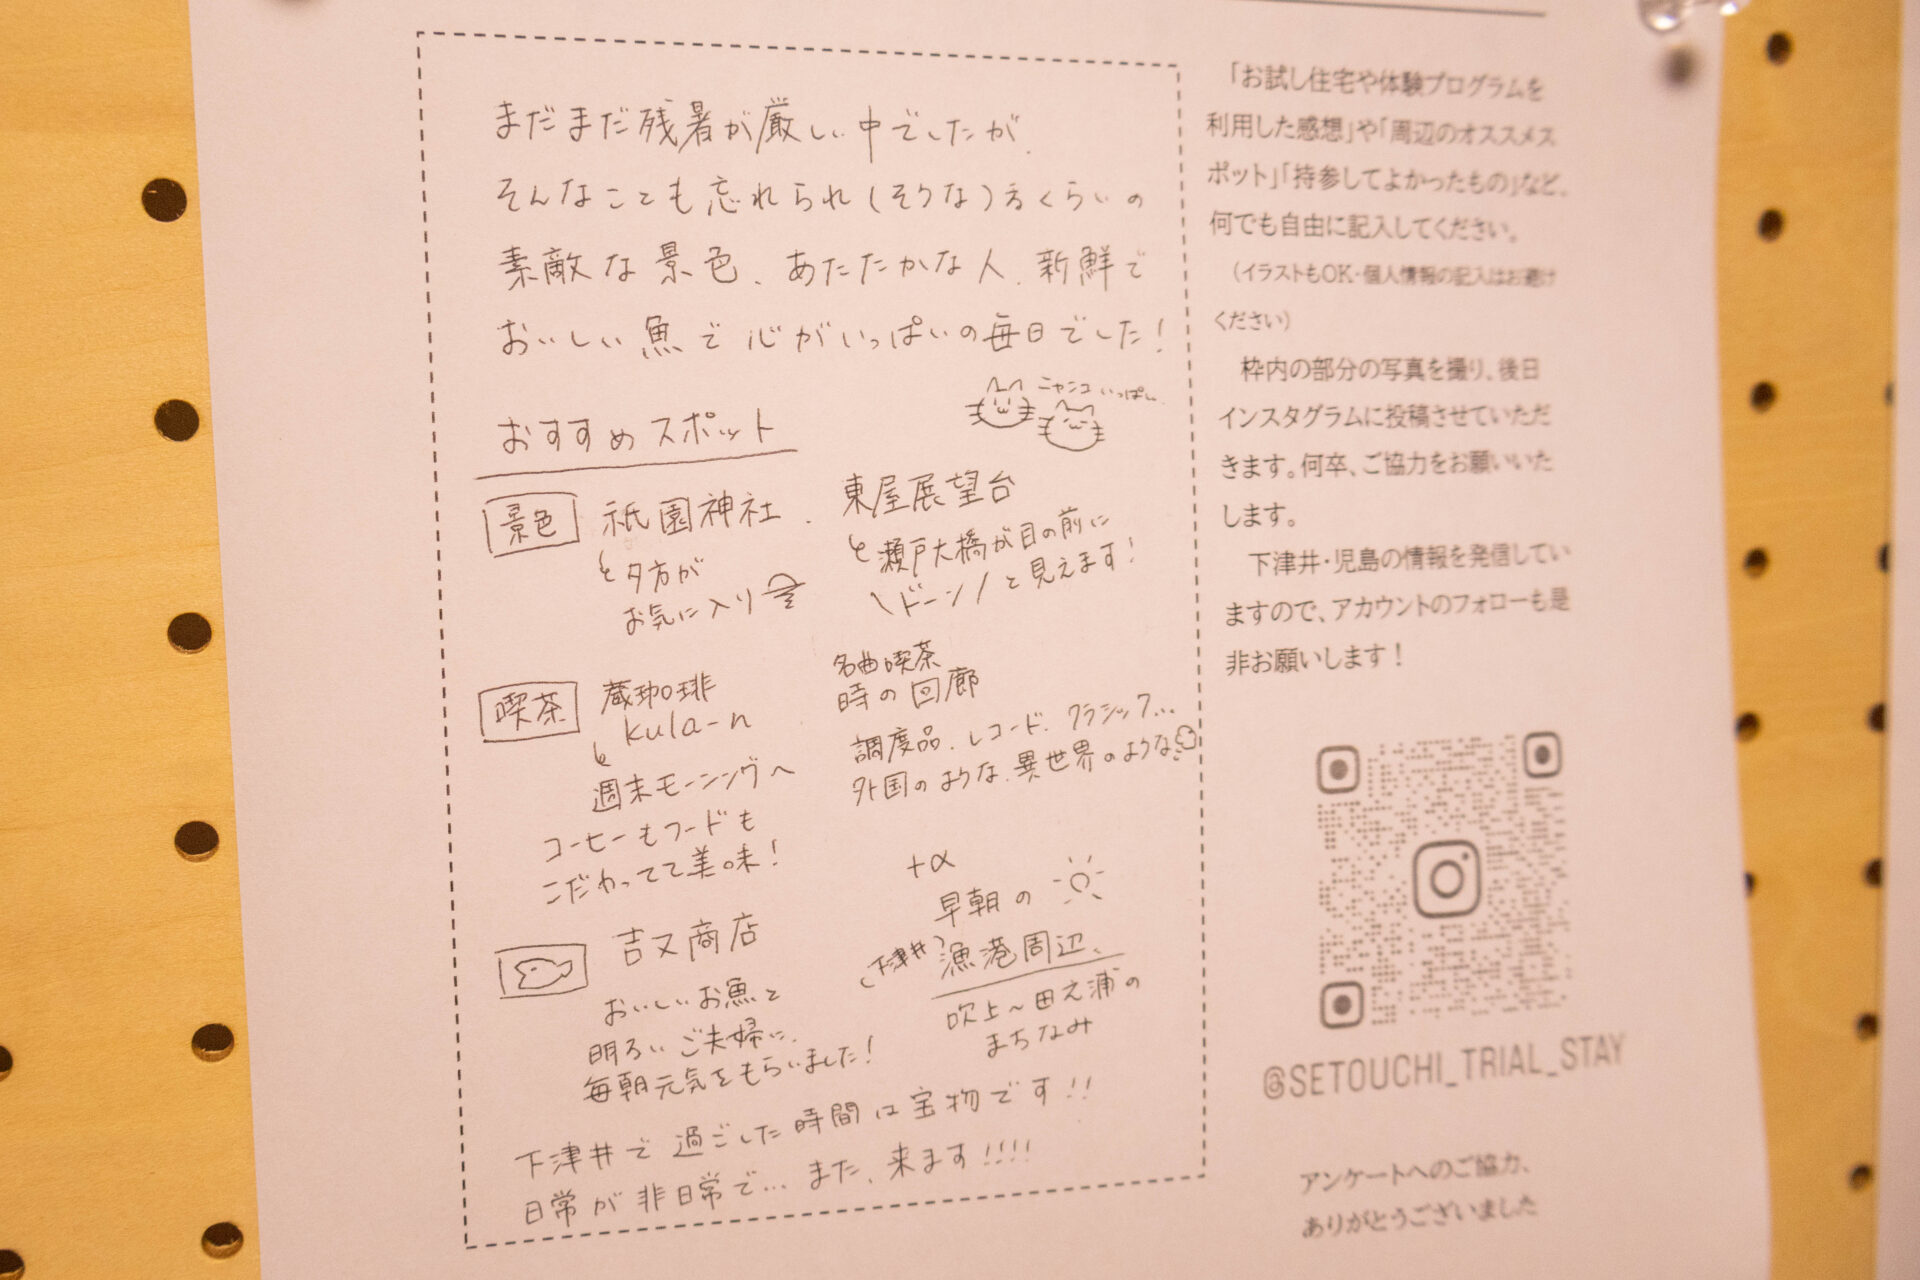 まだまだ残暑が厳しい中でしたが、
そんなことも忘れられ(そうな)るくらいの
素敵な景色、あたたかな人、新鮮で
おいしい魚で心がいっぱいの毎日でした!
ニャンコいっぱい
おすすめスポット
景色
祇園神社、
夕方が
お気に入り
東屋展望台
瀬戸大橋が目の前に
\ドーン/と見えます!
喫茶
蔵珈琲
kula-n
週末モーニングへ
コーヒーもフードも
こだわってて美味!
名曲喫茶
時の回廊
調度品、レコード、クラシック…
外国のような、異世界のような
吉又商店
おいしいお魚と
明るいご夫婦に、
毎朝元気をもらいました!
+α
早朝の
(下津井)漁港周辺、
吹上~田之浦の
まちなみ
下津井で過ごした時間は宝物です!!
日常が非日常で…また、来ます!!!!
「お試し住宅や体験プログラムを
利用した感想」や「周辺のオススメス
ポット」「持参してよかったもの」など、
何でも自由に記入してください。
(イラストもOK・個人情報の記入はお避け
ください)
枠内の部分の写真を撮り、後日
インスタグラムに投稿させていただ
きます。何卒、ご協力をお願いいた
します。
下津井・児島の情報を発信してい
ますので、アカウントのフォローも是
非お願いします!
@SETOUCHI_TRIAL_STAY
アンケートへのご協力、
ありがとうございました